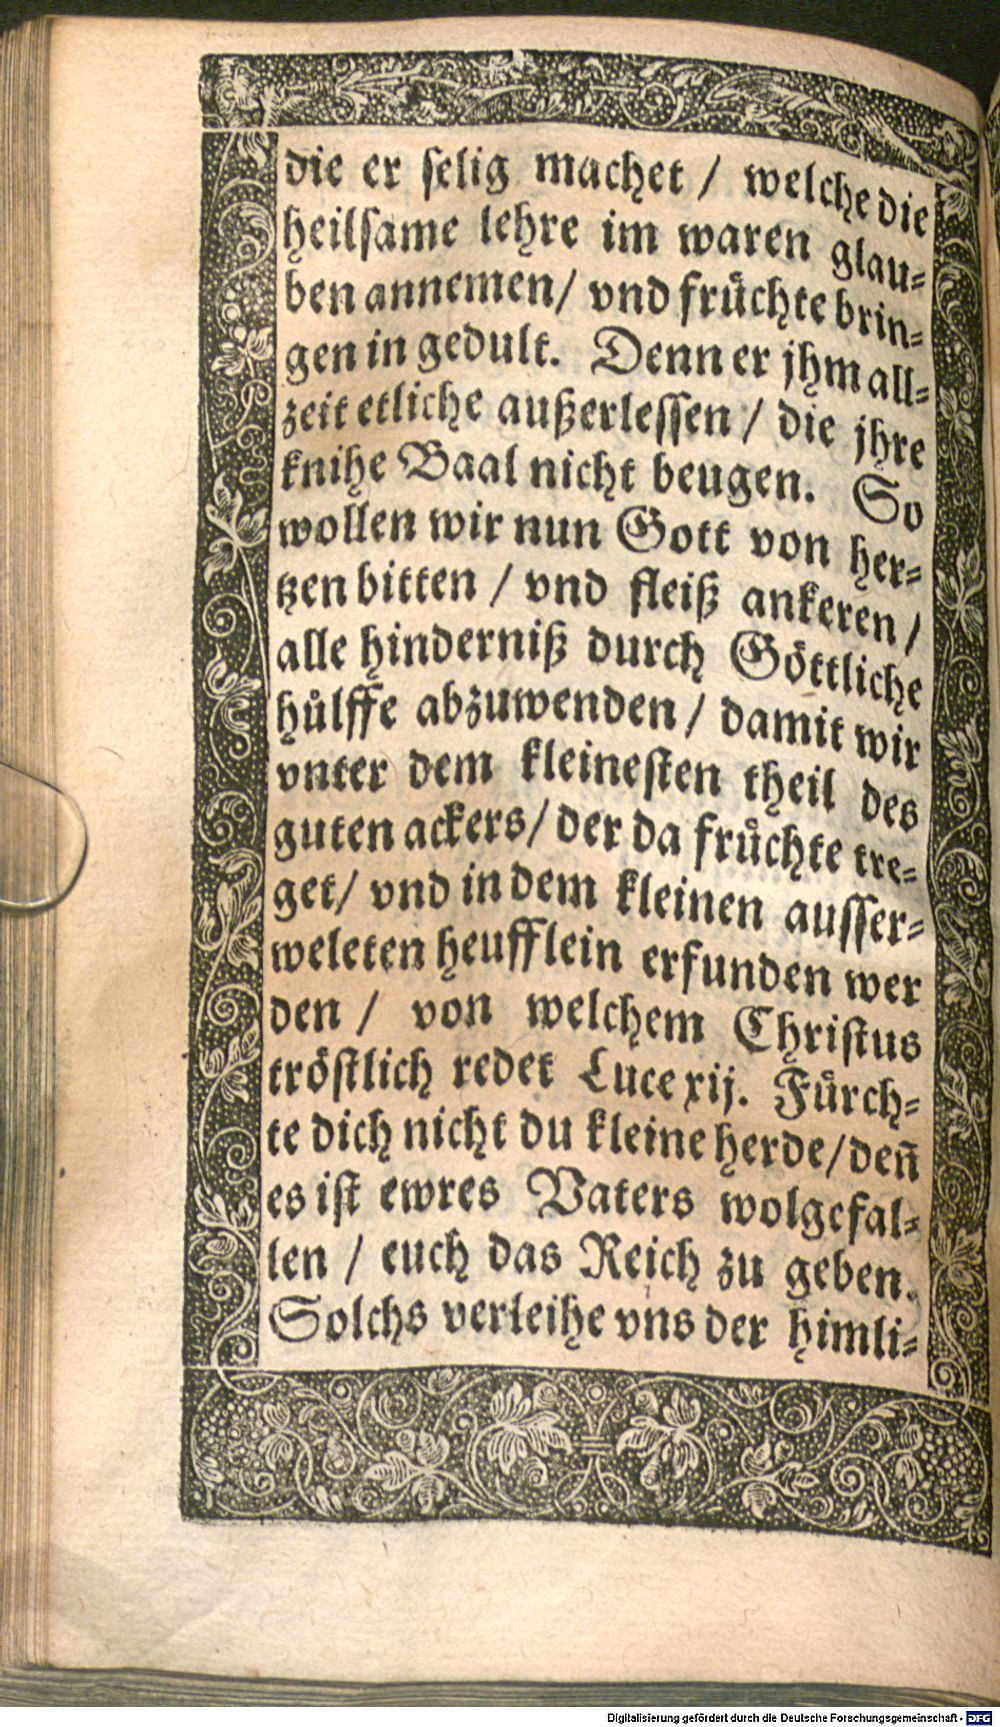 die er selig machet / welche die
heilsame lehre im waren glau⸗
ben annemen / vnd fruͤchte brin⸗
gen in gedult. Denn er jhm all⸗
zeit etliche außerlessen / die jhre
knihe Baal nicht beugen. So
wollen wir nun Gott von her⸗
tzen bitten / vnd fleiß ankeren /
alle hinderniß durch Goͤttliche
huͤlffe abzuwenden / damit wir
vnter dem kleinesten theil des
guten ackers / der da fruͤchte tre⸗
get / vnd in dem kleinen ausser⸗
weleten heufflein erfunden wer
den / von welchem Christus
troͤstlich redet Luce xij. Fuͤrch⸗
te dich nicht du kleine herde / deñ
es ist ewres Vaters wolgefal⸗
len / euch das Reich zu geben.
Solchs verleihe vns der himli⸗
Digitalisierung gefördert durch die Deutsche Forschungsgemeinschaft - DFG